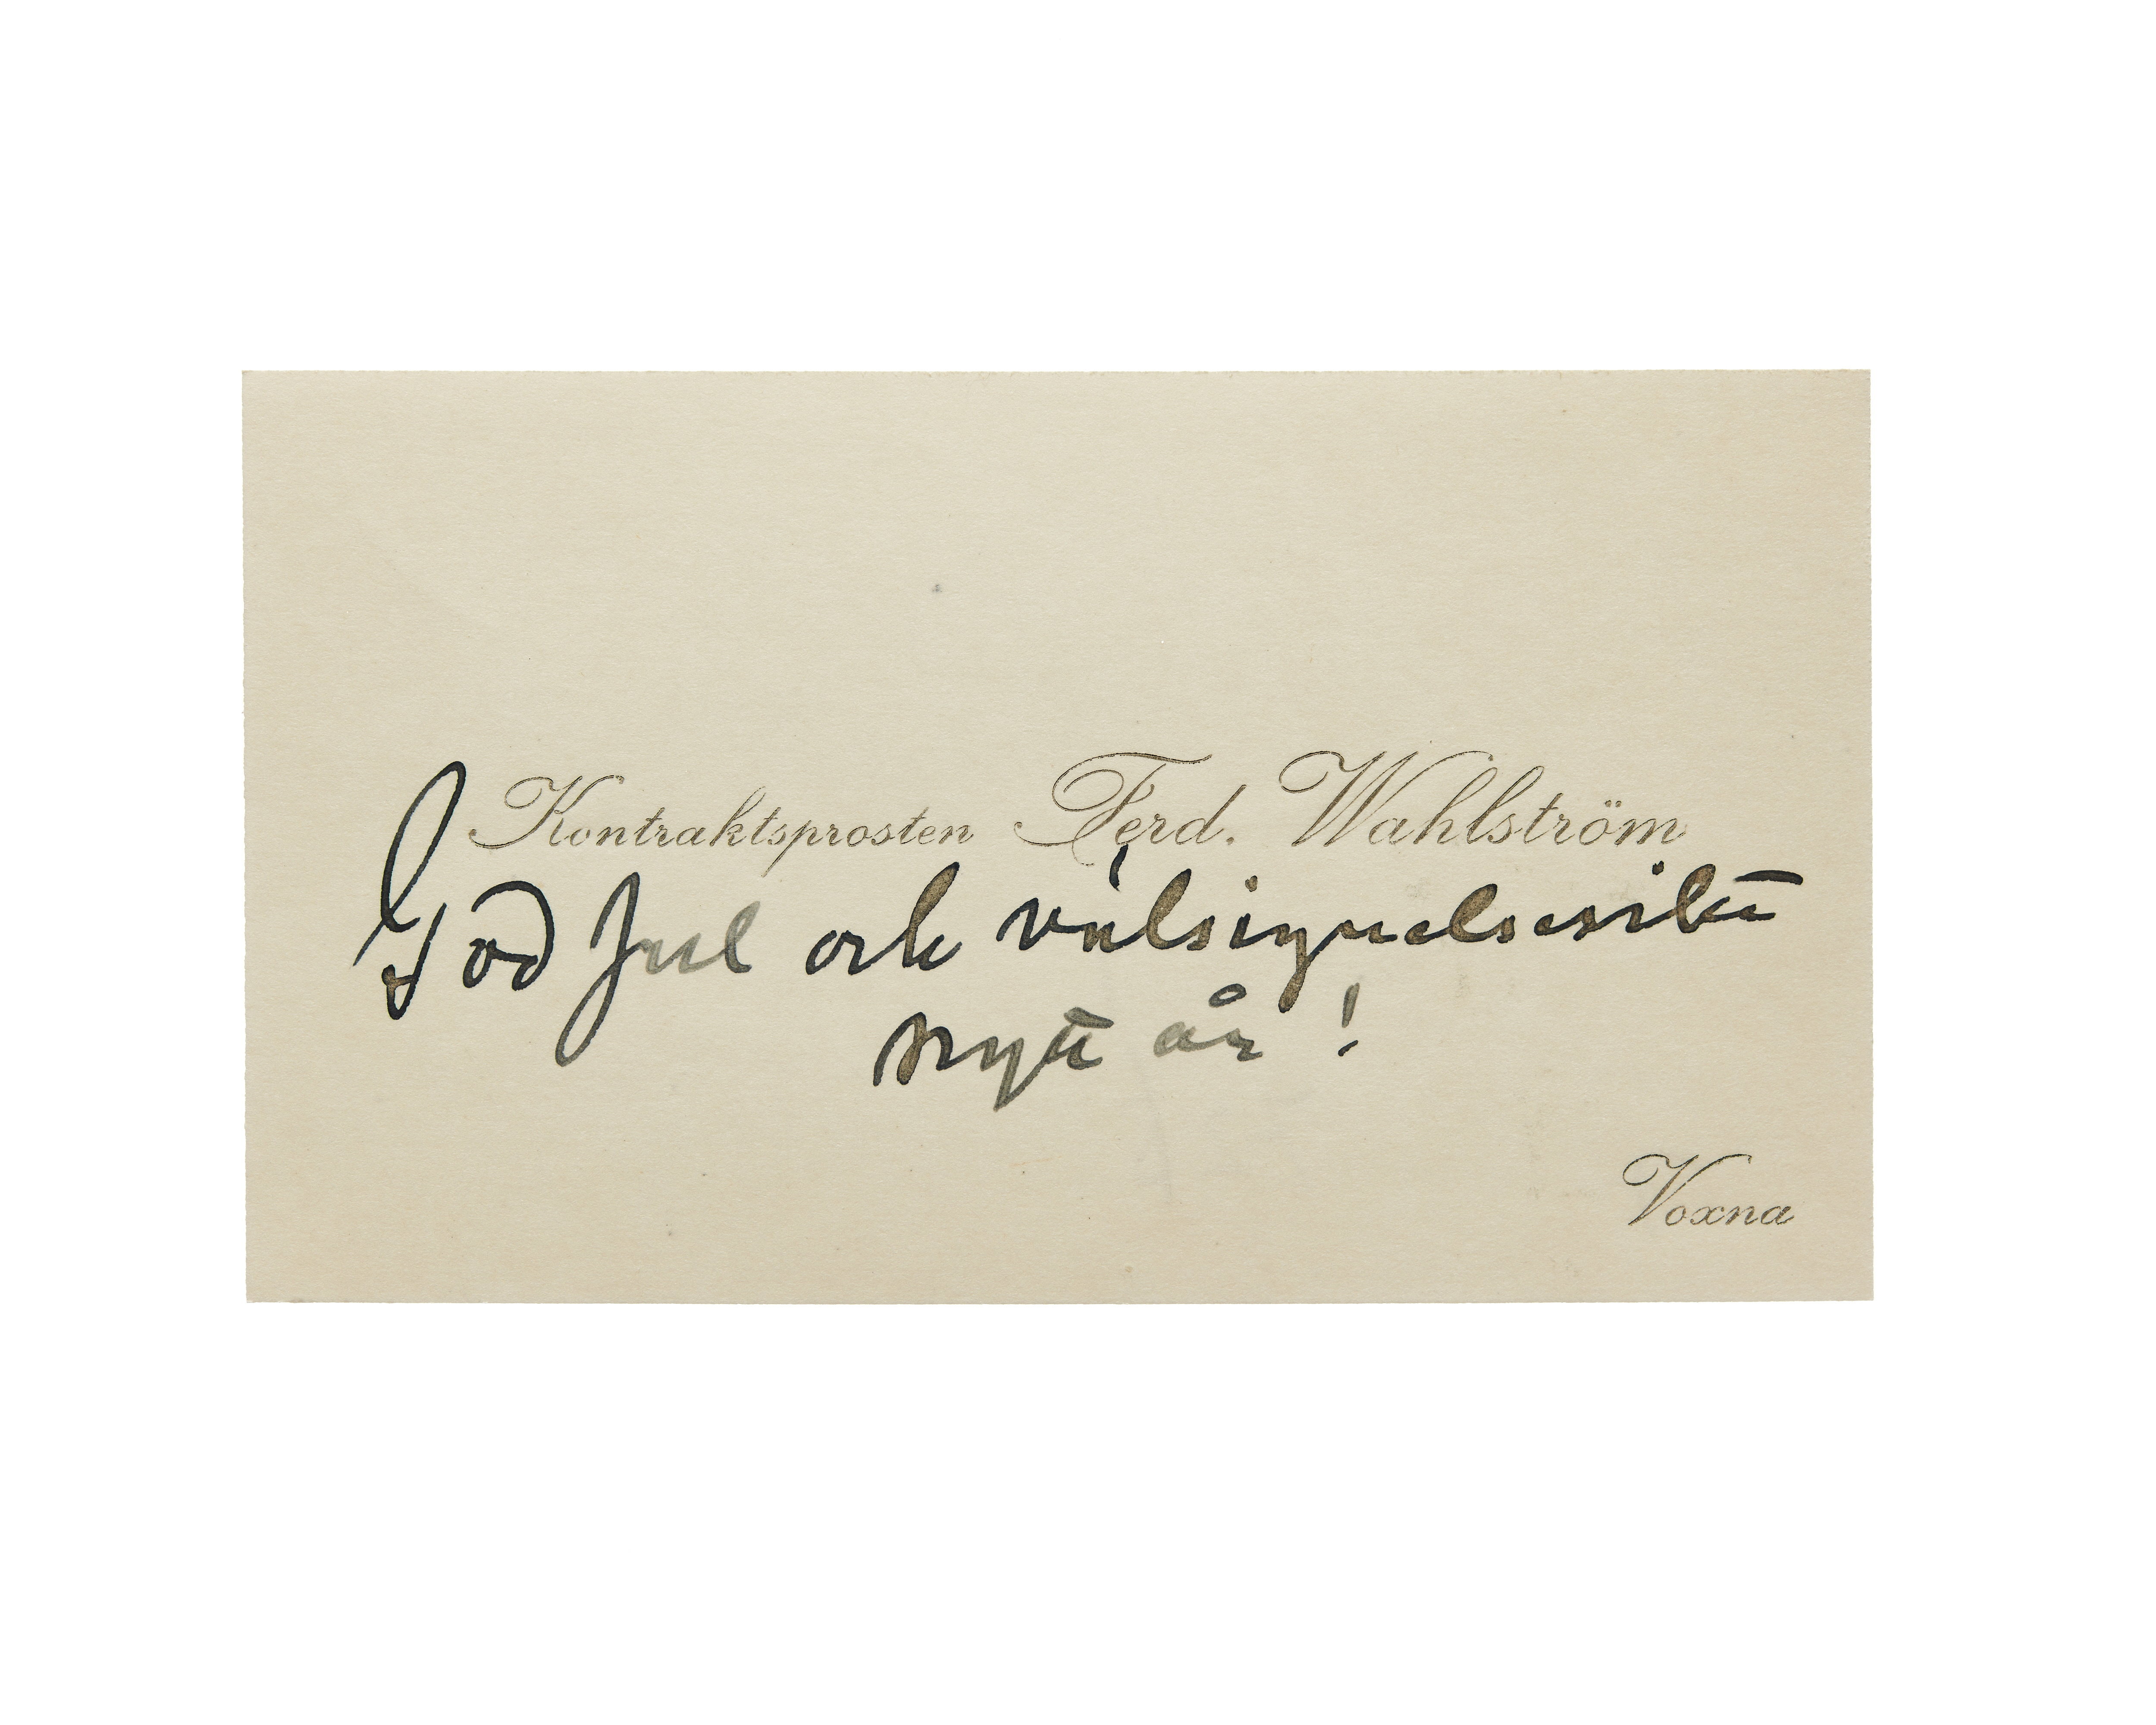 Kontraktsprosten Ferd. Wahlström
God Jul och välsignelserikt
nytt år!
Voxna